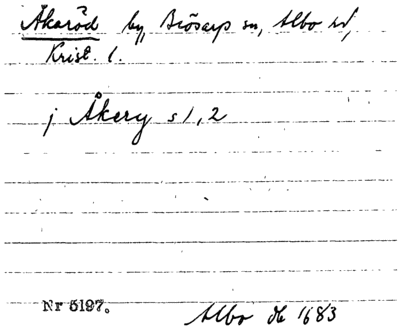 Åkaröd by, Brösarp sn, Albo hd,
Krist. l.
j Åkery s 1, 2
Nr 5197.
Albo db 1683